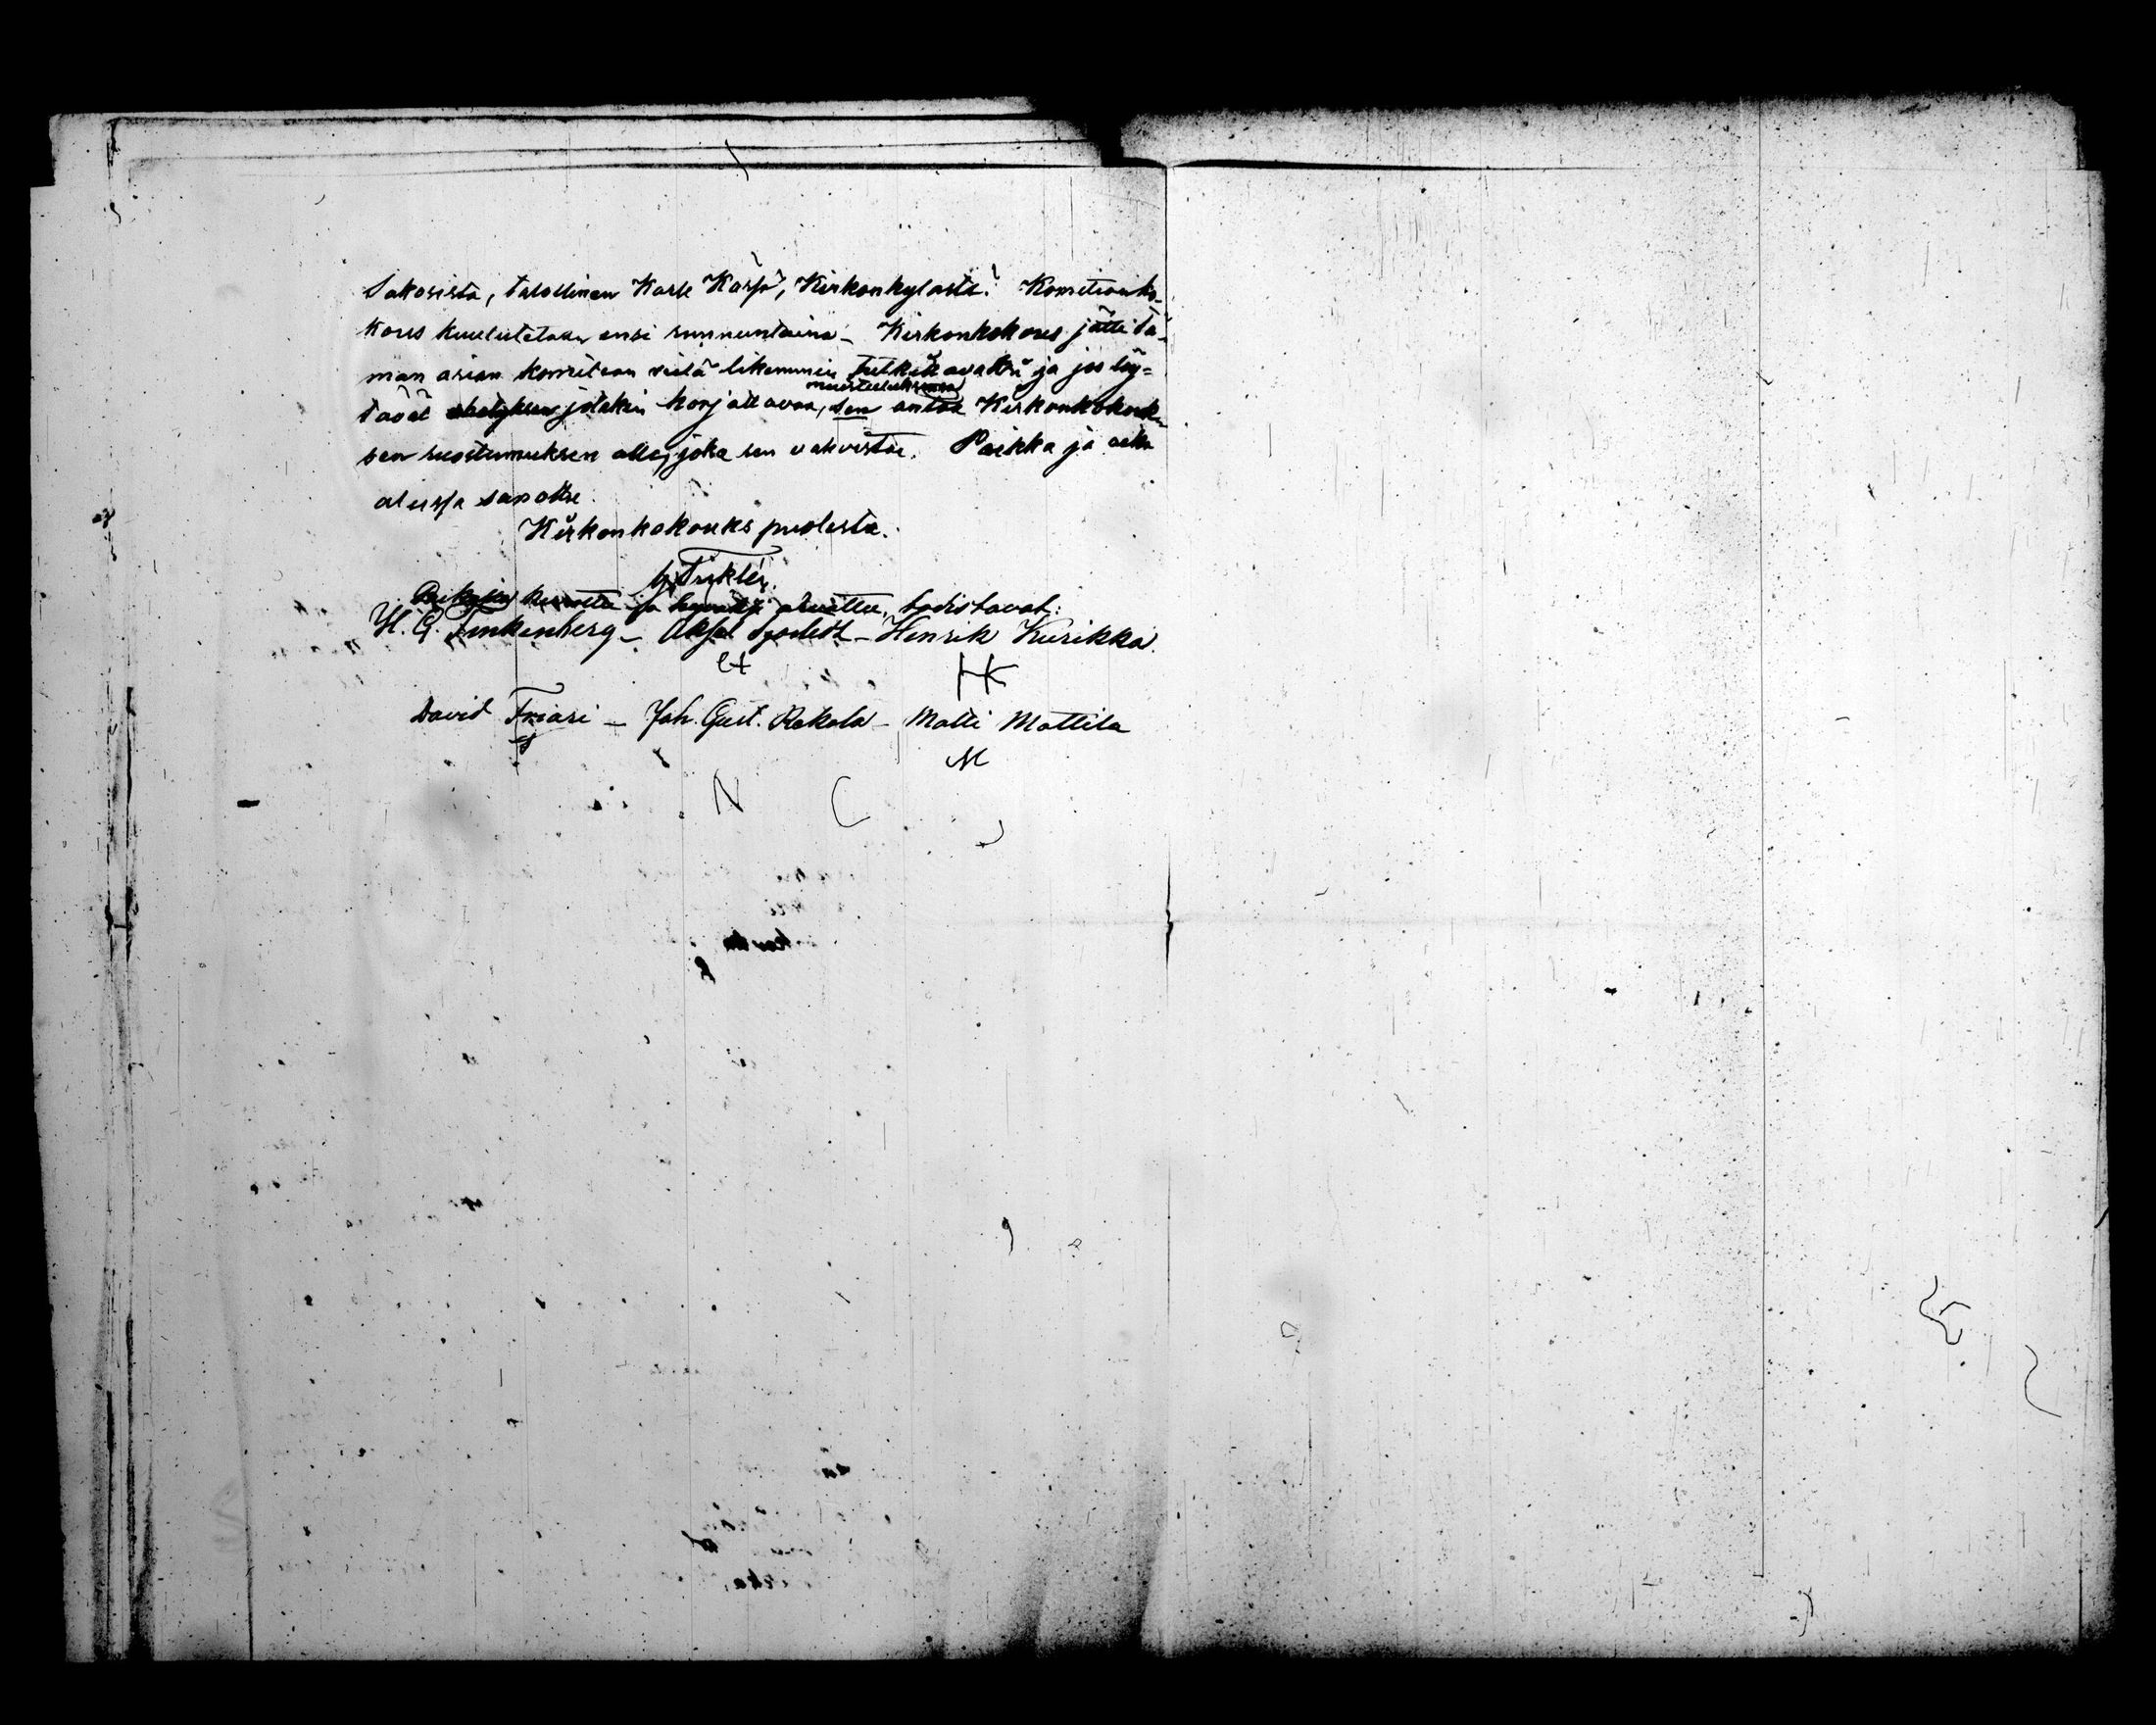 Sakosista, talollinen Karle Karfä, Kirkonkylästä. Komitean ko-
kous kuulutetaan ensi sunnuntaina – Kirkonkokous jätti tä-
män asian komitean vielä likemmin tutkittavaksi ja jos löy=
muistutuksensa
tävät jotakin korjattavaa, sen antaa Kirkonkokouk-
sen suostumuksen alle, joka sen vahvistaa. Paikka ja aika
alussa sanottu.
Kirkonkokouks puolesta.
ja todistavat:
H. G. Finkenberg – Aksel – Henrik Kurikka
HK
David Friari – Joh. Gust. Rekola – Matti Mattila
M